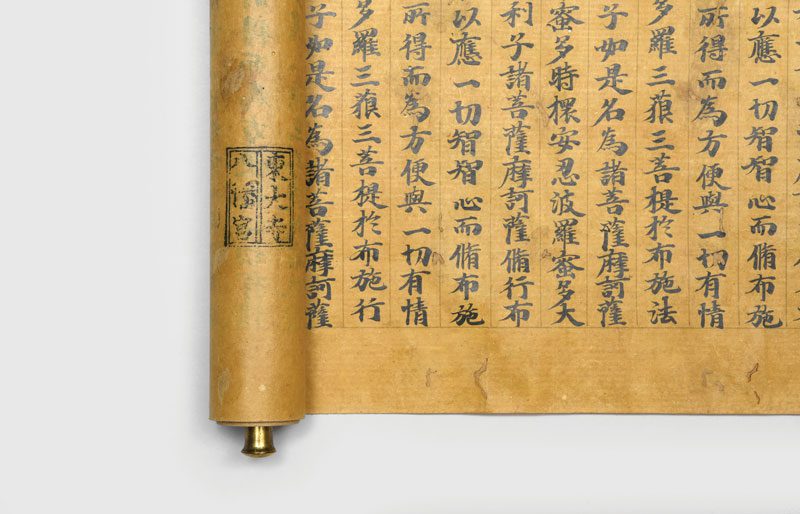 以應一切智智心而脩布施
所得而為方便與一切有情
多羅三藐三菩提於布施法
子如是名為諸菩薩摩訶薩
蜜多時擐安忍波羅蜜多大
利子諸菩薩摩訶薩脩行布
以應一切智智心而脩布施
所得而為方便與一切有情
多羅三藐三菩提於布施行
子如是名為諸菩薩摩訶薩
東大寺
八幡宮